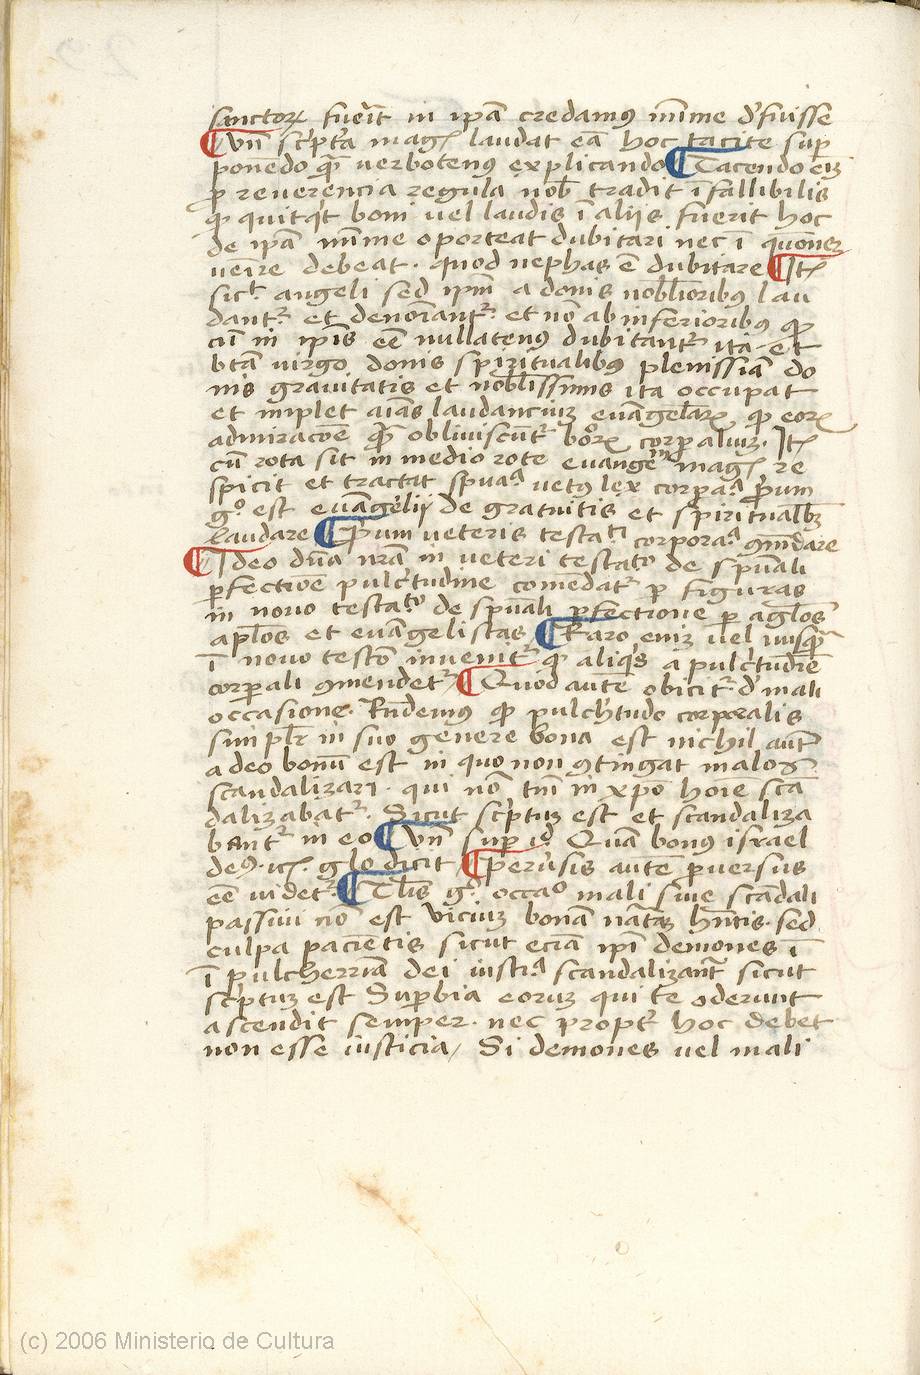 sanctoꝝ fuerit in ipā credamꝰ mīme dˀfuisse
¶ Vn̄ scˀptˀa magꝭ laudat eā hoc tacite sup
ponēdo qᷓ verbotenꝰ explicando ¶ Tacendo eiz
ꝓ reuerencia regula nob̄ tradit īfallibilis
ꝙ quitqͥt boni vel laudis ī aliis fuerit hoc
de ipā mīme oporteat dubitari nec ī quōnez
ueīre debeat · quod nephas ē dubitare ¶ Itꝭ
sicͭ angeli sed ipm̄ a donis nobˡioribꝰ lau
dantˀ et denoīantˀ et nō ab inferioribꝰ ꝙ
cū in ipīs eē nullatenꝰ dubitantˀ ita et
btā virgo donis spiritualibꝰ plenissīa do
nis grauitatis et nobˡissimis ita occupat
et implet aīas laudanciuz euāgelˀaꝝ ꝙ eoꝝ
admiracōē qᷓ obliuiscūtˀ boꝝ corꝑaliuz · Itꝭ
cū rota sit in medio rote euangeᵐ magꝭ re
spicit et tractat spuaᵃ vetꝰ lex corpaᵃ pͥmum
gͦ est euāgelij de gratuitis et spiritualibꝫ
laudare ¶ pͥum veteris testaᵗⁱ corporaᵃ ꝯmēdare
¶ Ideo dn̄a nrā in veteri testaᵗᵒ de spūali
ꝑfectiōē pulcˀtudine comēdatˀ ꝑ figuras
in nouo testaᵗᵒ de spūali ꝑfectione ꝑ agˡos
apˡos et euāgelistas ¶ Raro eniz vel nusqᷓ
ī nouo testō inuenitˀ ꝙ aliqͥs a pulcˀtudīē
corꝑali ꝯmendetˀ ¶ Quod autē obicitˀ dˀ mali
occasione · Rn̄demꝰ ꝙ pulchˀtudo corporalis
simplˀr in suo genere bona est nichil aut̄
adeo bonū est in quo non ꝯtingat malos
scandalizari · qui nō tm̄ in xpo hoīē scā
dalizabatˀ · Sicut scˀptuz est et scandaliza
bantˀ in eo ¶ vn̄ suꝑ id Quā bonꝰ israel
deꝰ · itꝭ · glo dicit ¶ peruˀsis autē ꝑuersus
eē videtˀ ¶ Tˡis gͦ occaͦ mali siue scādali
passiui nō est viciuz bonā nāta̅ hn̄tis · sed
culpa pacientis sicut eciā ipi demones ī
ī pulcherrīa dei iustiᵃ scandalizant̄ sicut
scˀptuz est Suꝑbia eoruz qui te oderunt
ascendit semper · nec proptˀ hoc debet
non esse iusticia / Si demones uel mali